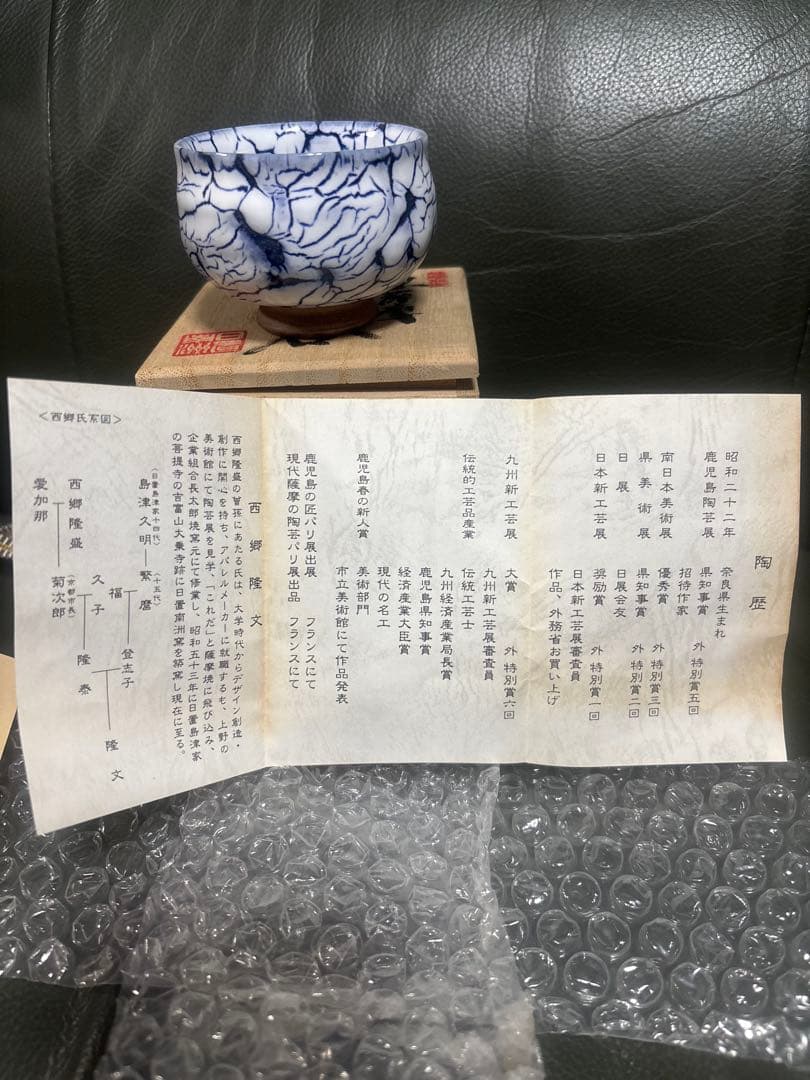 陶歴
昭和二十二年 奈良県生まれ
鹿児島陶芸展 県知事賞 外 特別賞五回
招待作家
南日本美術展 優秀賞 外 特別賞三回
県美術展 県知事賞 外 特別賞二回
日展 日展会友
日本新工芸展 奨励賞 外 特別賞一回
日本新工芸展審査員
作品、外務省お買い上げ
九州新工芸展 大賞 外 特別賞六回
九州新工芸展審査員
伝統的工芸品産業 伝統工芸士
九州経済産業局長賞
鹿児島県知事賞
経済産業大臣賞
現代の名工
鹿児島春の新人賞 美術部門
市立美術館にて作品発表
鹿児島の匠パリ展出展 フランスにて
現代薩摩の陶芸パリ展出品 フランスにて
西郷隆文
西郷隆盛の曽孫にあたる氏は、大学時代からデザイン創造・
創作に関心を持ち、アパレルメーカーに就職するも、上野の
美術館にて陶芸展を見学、「これだ」と薩摩焼に飛び込み、
企業組合長太郎焼窯元にて修業し、昭和五十三年に日置島津家
の菩提寺の吉富山大乗寺跡に日置南洲窯を築窯し現在に至る。
<西郷氏系図>
(日置島津家十四代) (十五代)
島津久明 繁麿
福 登志子
久子 隆文
西郷隆盛 (京都市長) 隆泰
菊次郎
愛加那